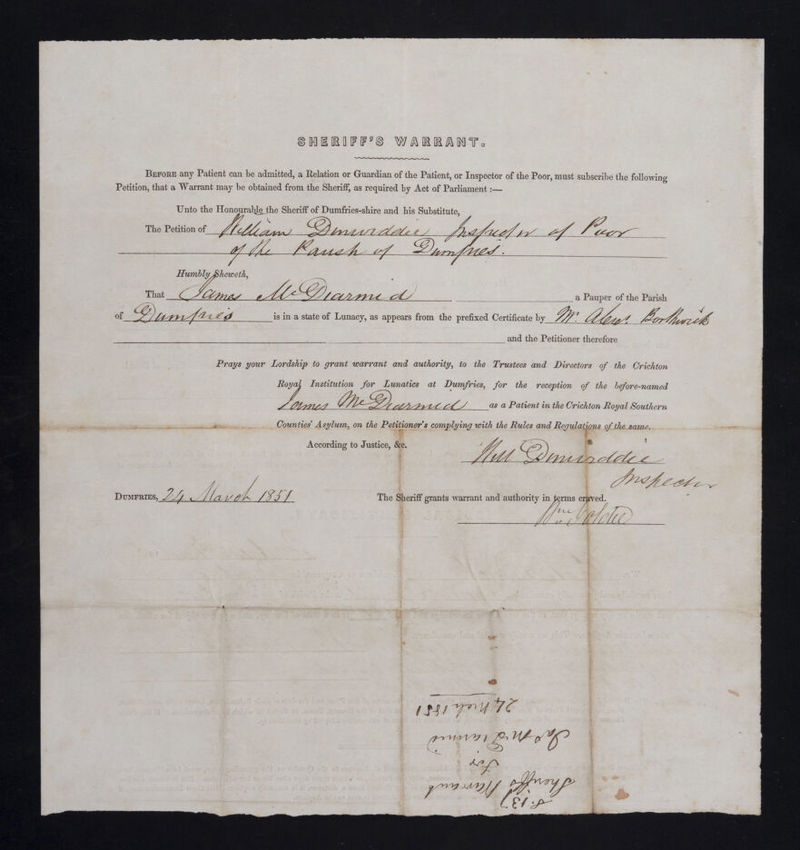 SHERIFF'S WARRANT.
BEFORE any Patient can be admitted, a Relation or Guardian of the Patient, or Inspector of the Poor, must subscribe the following
Petition, that a Warrant may be obtained from the Sheriff, as required by Act of Parliament :—
Unto the Honourable the Sheriff of Dumfries-shire and his Substitute,
The Petition of William Dinwiddie Inspector of Poor
of the Parish of Dumfries.
Humbly Sheweth,
That James McDiarmid a Pauper of the Parish
of Dumfries is in a state of Lunacy, as appears from the prefixed Certificate by Mr. Alexr. Borthwick
and the Petitioner therefore
Prays your Lordship to grant warrant and authority, to the Trustees and Directors of the Crichton
Royal Institution for Lunatics at Dumfries, for the reception of the before-named
James McDiarmid as a Patient in the Crichton Royal Southern
Counties' Asylum, on the Petitioner's complying with the Rules and Regulations of the same.
According to Justice, &c.
Will Dinwiddie
Inspector
DUMFRIES, 24 March 1851 The Sheriff grants warrant and authority in terms craved.
Wm Goldie
Sheriff's Warrant
for
Jas McDiarmid
24 Mch 1851